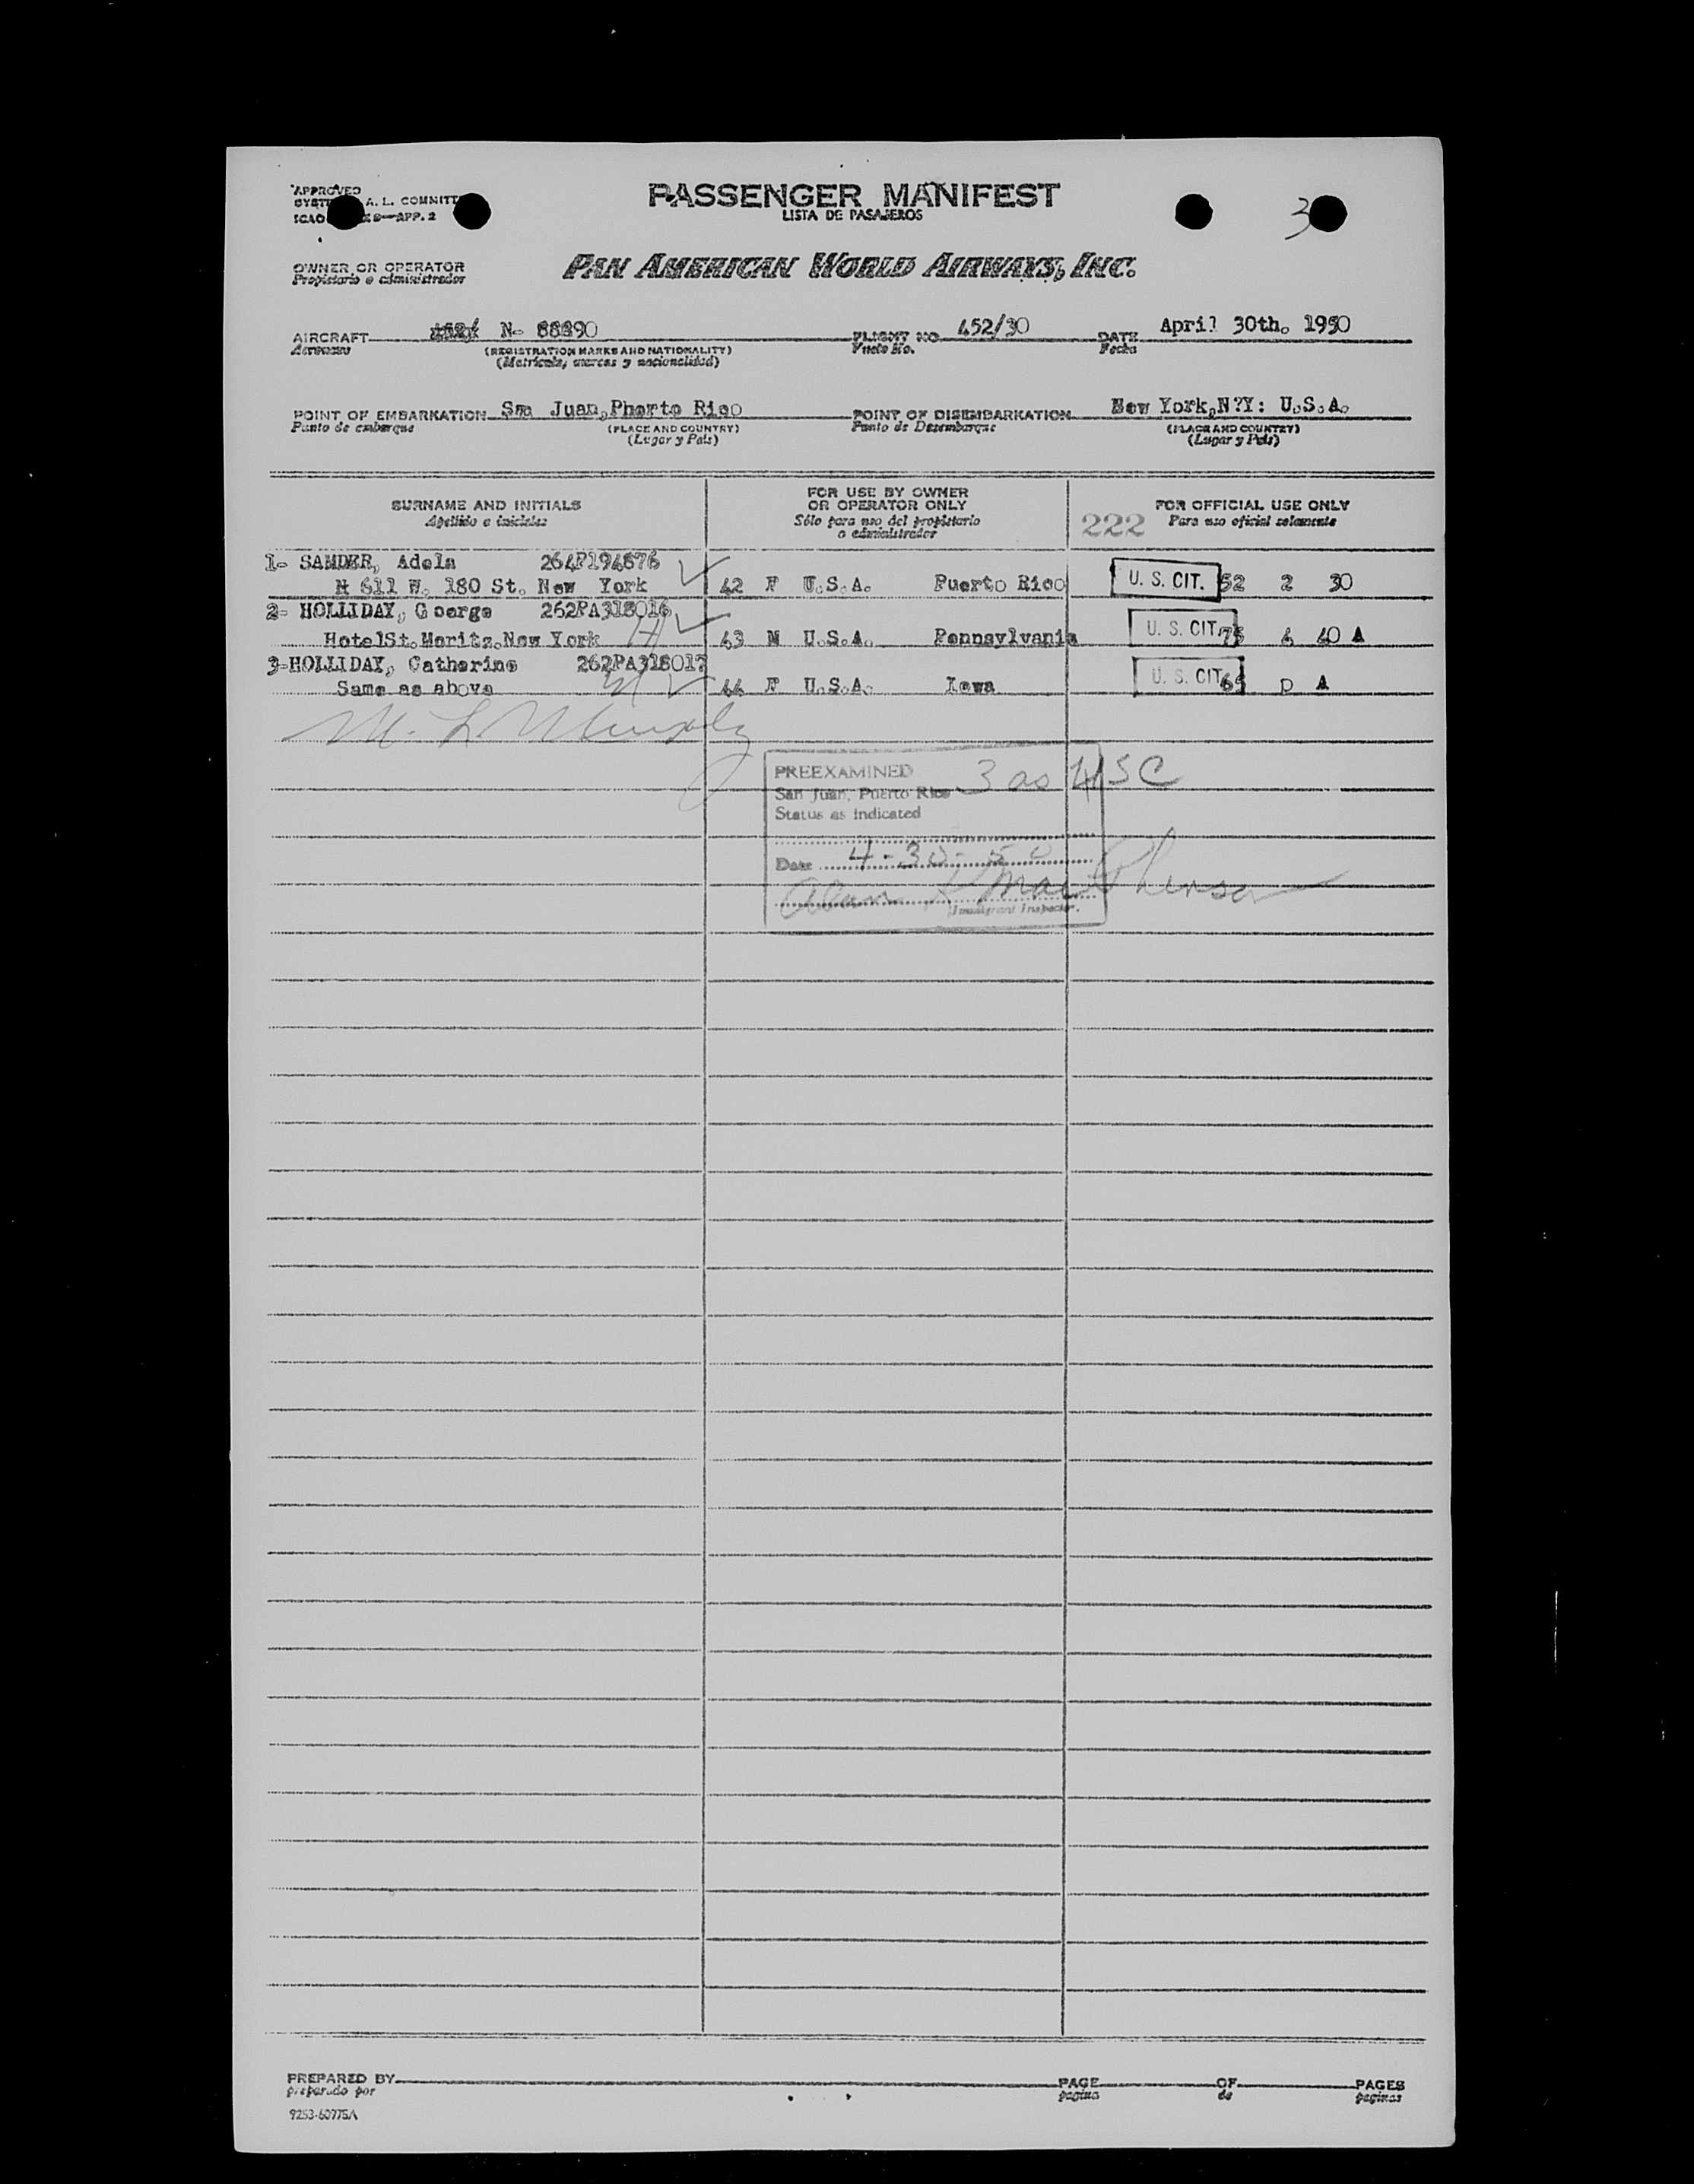 APPROVED
A. L. COMMITT
ICAO APP. 2
PASSENGER MANIFEST
LISTA DE PASAJEROS
3
OWNER OR OPERATOR
Propietario o administrador
PAN AMERICAN WORLD AIRWAYS, INC.
AIRCRAFT N- 88890 FLIGHT NO. 452/30 DATE April 30th. 1950
Aeronave (REGISTRATION MARKS AND NATIONALITY) Vuelo No. Fecha
(Matrícula, marcas y nacionalidad)
POINT OF EMBARKATION Sam Juan,Phorto Rico POINT OF DISEMBARKATION New York,N?Y: U.S.A.
Punto de embarque (PLACE AND COUNTRY) Punto de Desembarque (PLACE AND COUNTRY)
(Lugar y País) (Lugar y País)
SURNAME AND INITIALS FOR USE BY OWNER OR OPERATOR ONLY FOR OFFICIAL USE ONLY
Apellido e iniciales Sólo para uso del propietario o administrador 222 Para uso oficial solamente
1- SAMDER, Adela 264P194876
611 W. 180 St. New York 42 F U.S.A. Puerto Rico U. S. CIT. 52 2 30
2- HOLLIDAY, George 262PA318016
HotelSt.Moritz.New York H 43 M U.S.A. Pennsylvania U. S. CIT. 75 4 40 A
3-HOLLIDAY, Catherine 262PA318017
Same as above 44 F U.S.A. Iowa U. S. CIT. 65 D A
M. L. Murphy
PREEXAMINED 3 as USC
San Juan, Puerto Rico
Status as indicated
Date 4-30-50
Alan MacPherson
Immigrant Inspector.
PREPARED BY PAGE OF PAGES
preparado por pagina de paginas
9253-60775A